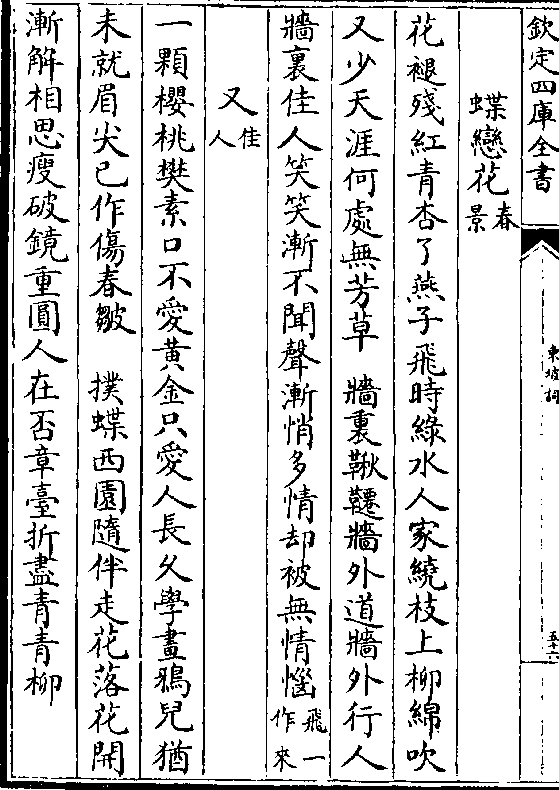 欽定四庫全書
東坡詞
五十六
蝶戀花春景
花褪殘紅青杏了燕子飛時綠水人家繞枝上柳綿吹
又少天涯何處無芳草　牆裏鞦韆牆外道牆外行人
牆裏佳人笑笑漸不聞聲漸悄多情却被無情惱飛一作來
又佳人
一顆櫻桃樊素口不愛黃金只愛人長久學畫鴉兒猶
未就眉尖已作傷春皺　撲蝶西園隨伴走花落花開
漸解相思瘦破鏡重圓人在否章臺折盡青青柳